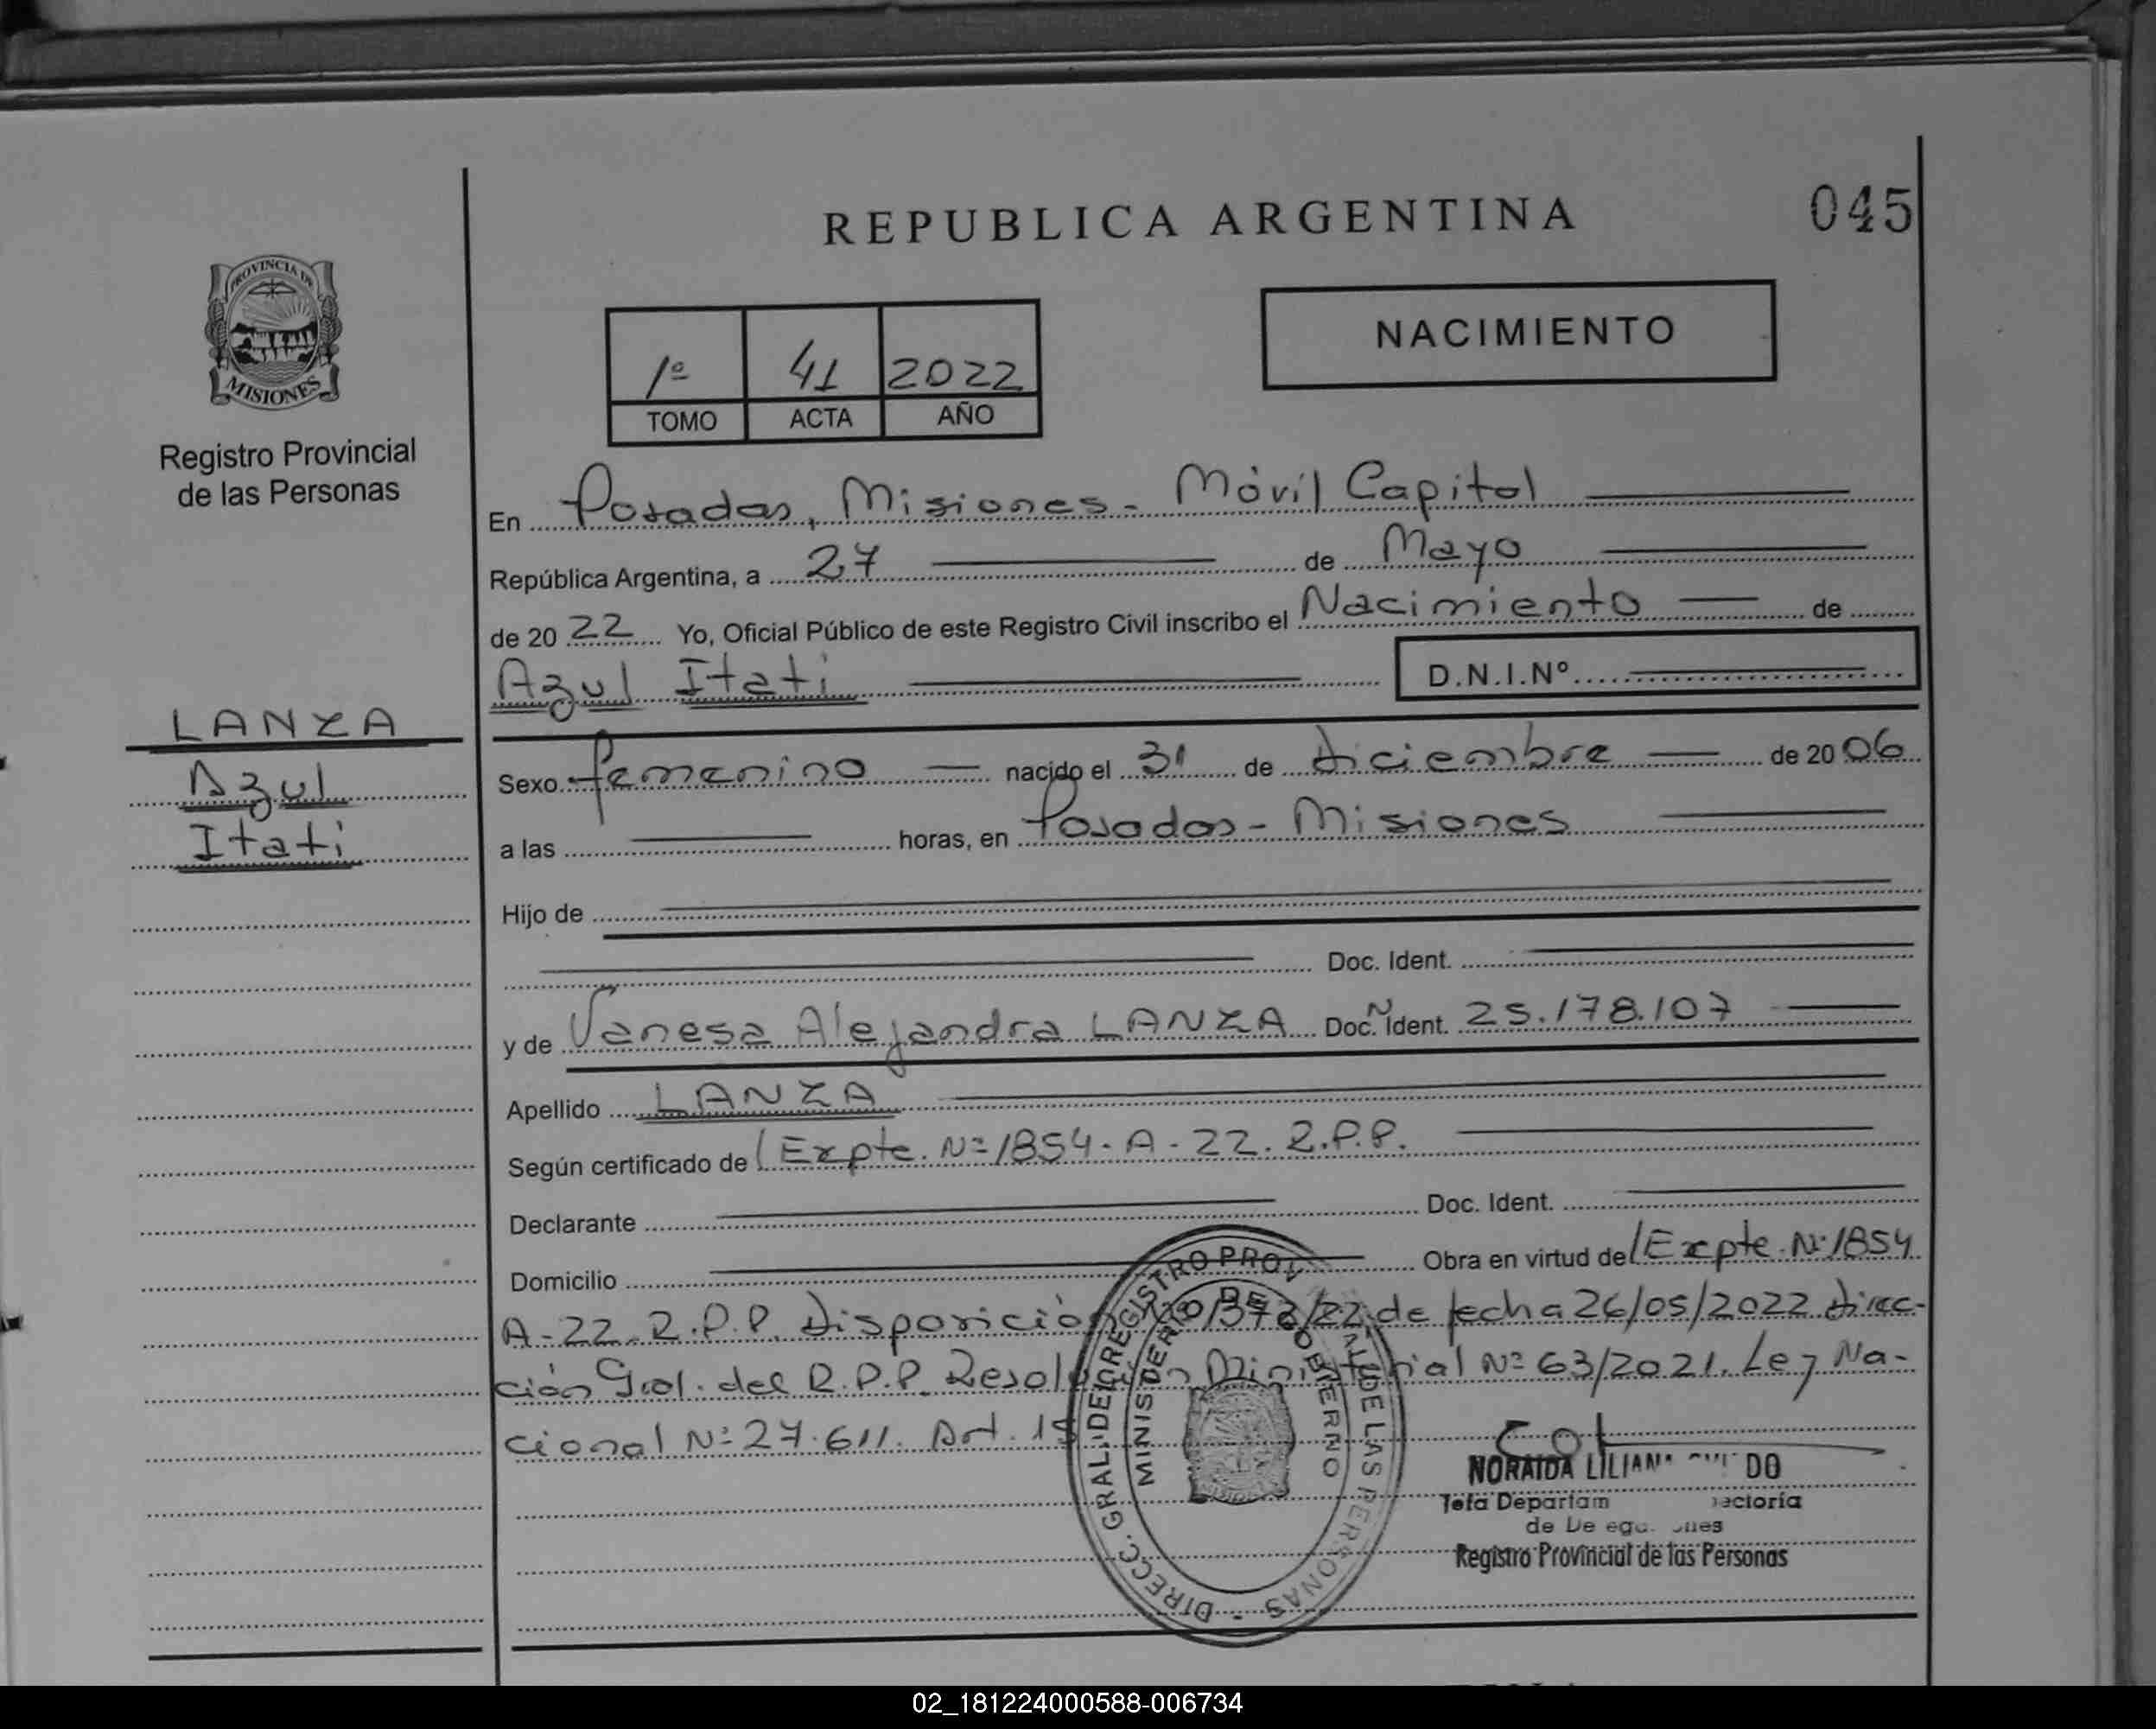 REPUBLICA ARGENTINA
045
PROVINCIA DE
MISIONES
Registro Provincial
de las Personas
1º 41 2022
TOMO ACTA AÑO
NACIMIENTO
En Posadas, Misiones - Móvil Capital
República Argentina, a 27 de Mayo
de 2022 Yo, Oficial Público de este Registro Civil inscribo el Nacimiento de
Azul Itati D.N.I.Nº
LANZA
Azul
Itati
Sexo femenino nacido el 31 de diciembre de 2006
a las horas, en Posadas - Misiones
Hijo de
Doc. Ident.
y de Vanesa Alejandra LANZA Doc. Nº Ident. 25.178.107
Apellido LANZA
Según certificado de / Expte. Nº 1854 - A - 22. R.P.P.
Declarante Doc. Ident.
Domicilio Obra en virtud de / Expte. Nº 1854
A - 22. R.P.P. Disposición de fecha 26/05/2022 Direc-
ción Gral. del R.P.P. Resolución Ministerial Nº 63/2021. Ley Na-
cional Nº 27.611. Art. 15
DIRECC. GRAL. DEL REGISTRO PROV. DE LAS PERSONAS -
MINISTERIO DE GOBIERNO
NORAIDA LILIANA DO
Jefa Departam
de
Registro Provincial de las Personas
02_181224000588-006734